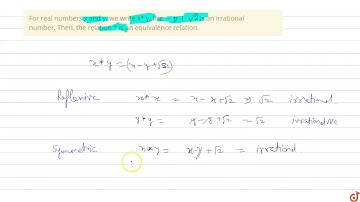 For real numbers x and y, we write x*y, if x − y + √2 is an irrational
number. Then, the relation * is an equivalence relation.
x * y = (x − y + √2)
Reflexive x * x = x − x + √2 ⇒ √2 irrational.
y * y = y − y + √2 = √2 irrational
Symmetric x * y = x − y + √2 = irrational